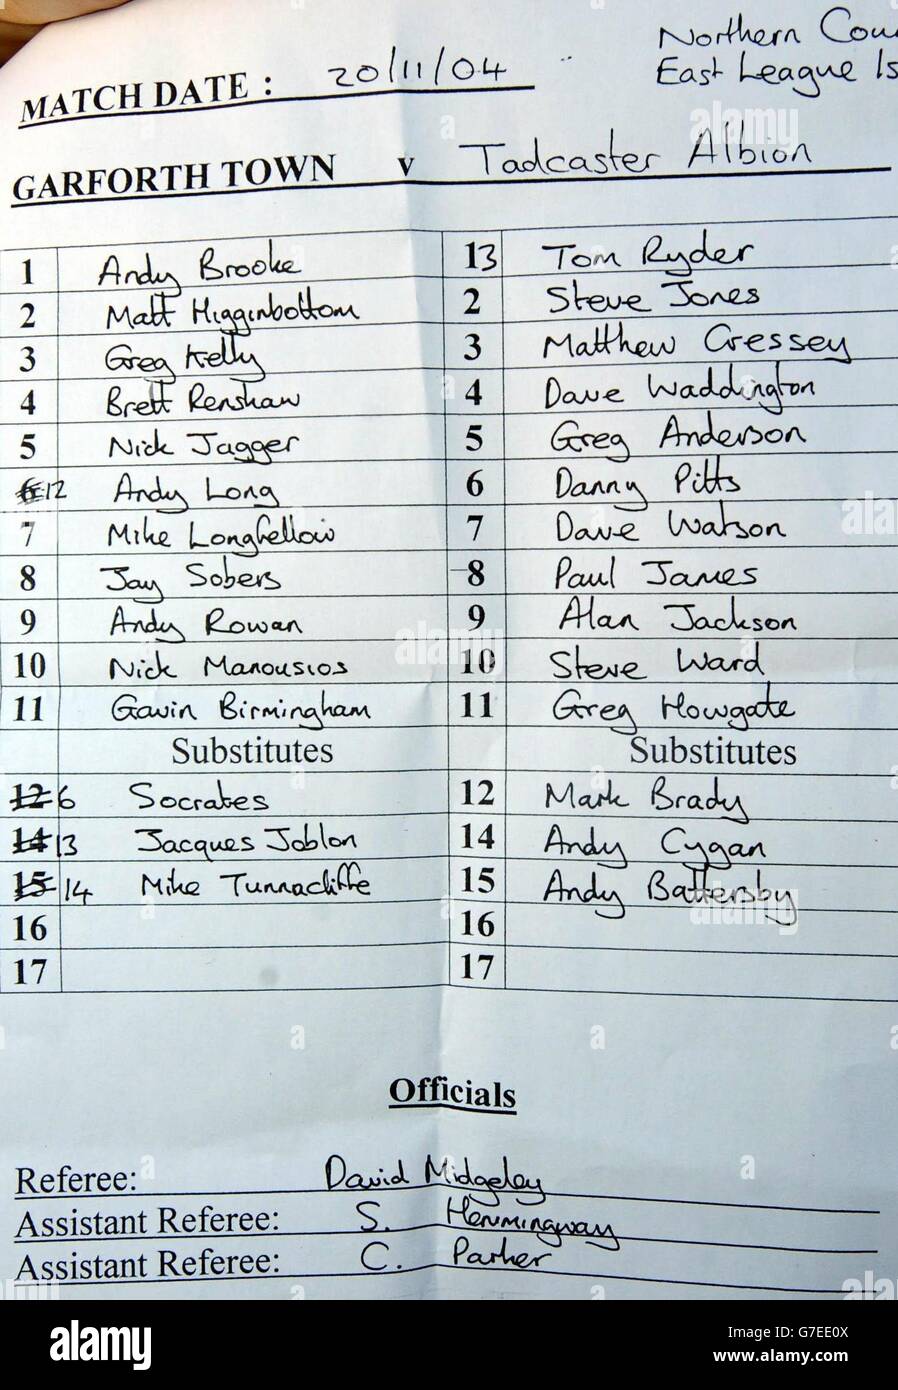 Northern Cou
East League 1s
MATCH DATE : 20/11/04
GARFORTH TOWN v Tadcaster Albion
1 Andy Brooke 13 Tom Ryder
2 Matt Higginbottom 2 Steve Jones
3 Greg Kelly 3 Matthew Cressey
4 Brett Renshaw 4 Dave Waddington
5 Nick Jagger 5 Greg Anderson
6 12 Andy Long 6 Danny Pitts
7 Mike Longfellow 7 Dave Watson
8 Jay Sobers 8 Paul James
9 Andy Rowan 9 Alan Jackson
10 Nick Manousios 10 Steve Ward
11 Gavin Birmingham 11 Greg Howgate
Substitutes Substitutes
12 6 Socrates 12 Mark Brady
14 13 Jacques Joblon 14 Andy Cygan
15 14 Mike Tunnacliffe 15 Andy Battersby
16 16
17 17
Officials
Referee: David Midgeley
Assistant Referee: S. Hemmingway
Assistant Referee: C. Parker
alamy
Image ID: G7EE0X
www.alamy.com